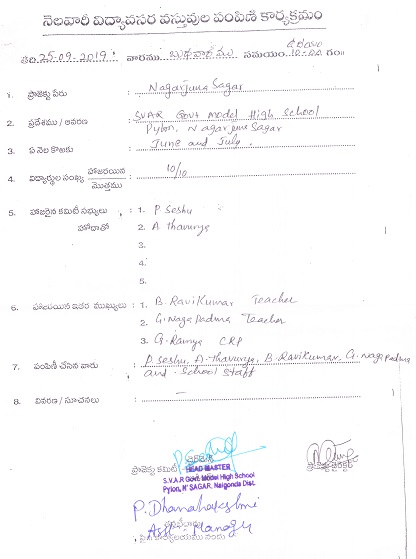 నెలవారీ విద్యావసర వస్తువుల పంపిణి కార్యక్రమం
తేది 25-09-2019 వారము బుధవారము సమయం ఉదయం 10-00 గం॥
1. ప్రాజెక్టు పేరు : Nagarjuna Sagar
2. ప్రదేశము / ఆవరణ : SVAR Govt Model High School
Pylon, Nagarjuna Sagar
3. ఏ నెల కొఱకు : June and July.
4. విద్యార్థుల సంఖ్య హాజరయిన / మొత్తము : 10/10
5. హాజరైన కమిటీ సభ్యులు : 1. P. Seshu
హోదాతో 2. A Thavurya
3.
4.
5.
6. హాజరయిన ఇతర ముఖ్యులు : 1. B. Ravi Kumar Teacher
2. G. Naga Padma Teacher
3. G. Ramya CRP
7. పంపిణీ చేసిన వారు : P. Seshu, A. Thavurya, B. Ravi Kumar, G. naga Padma
and - School Staff
8. వివరణ / సూచనలు : —
ప్రాజెక్టు కమిటీ
HEAD MASTER
S.V.A.R Govt. Model High School
Pylon, N' SAGAR, Nalgonda Dist.
P. Dhanalakshmi
Asst. Manager